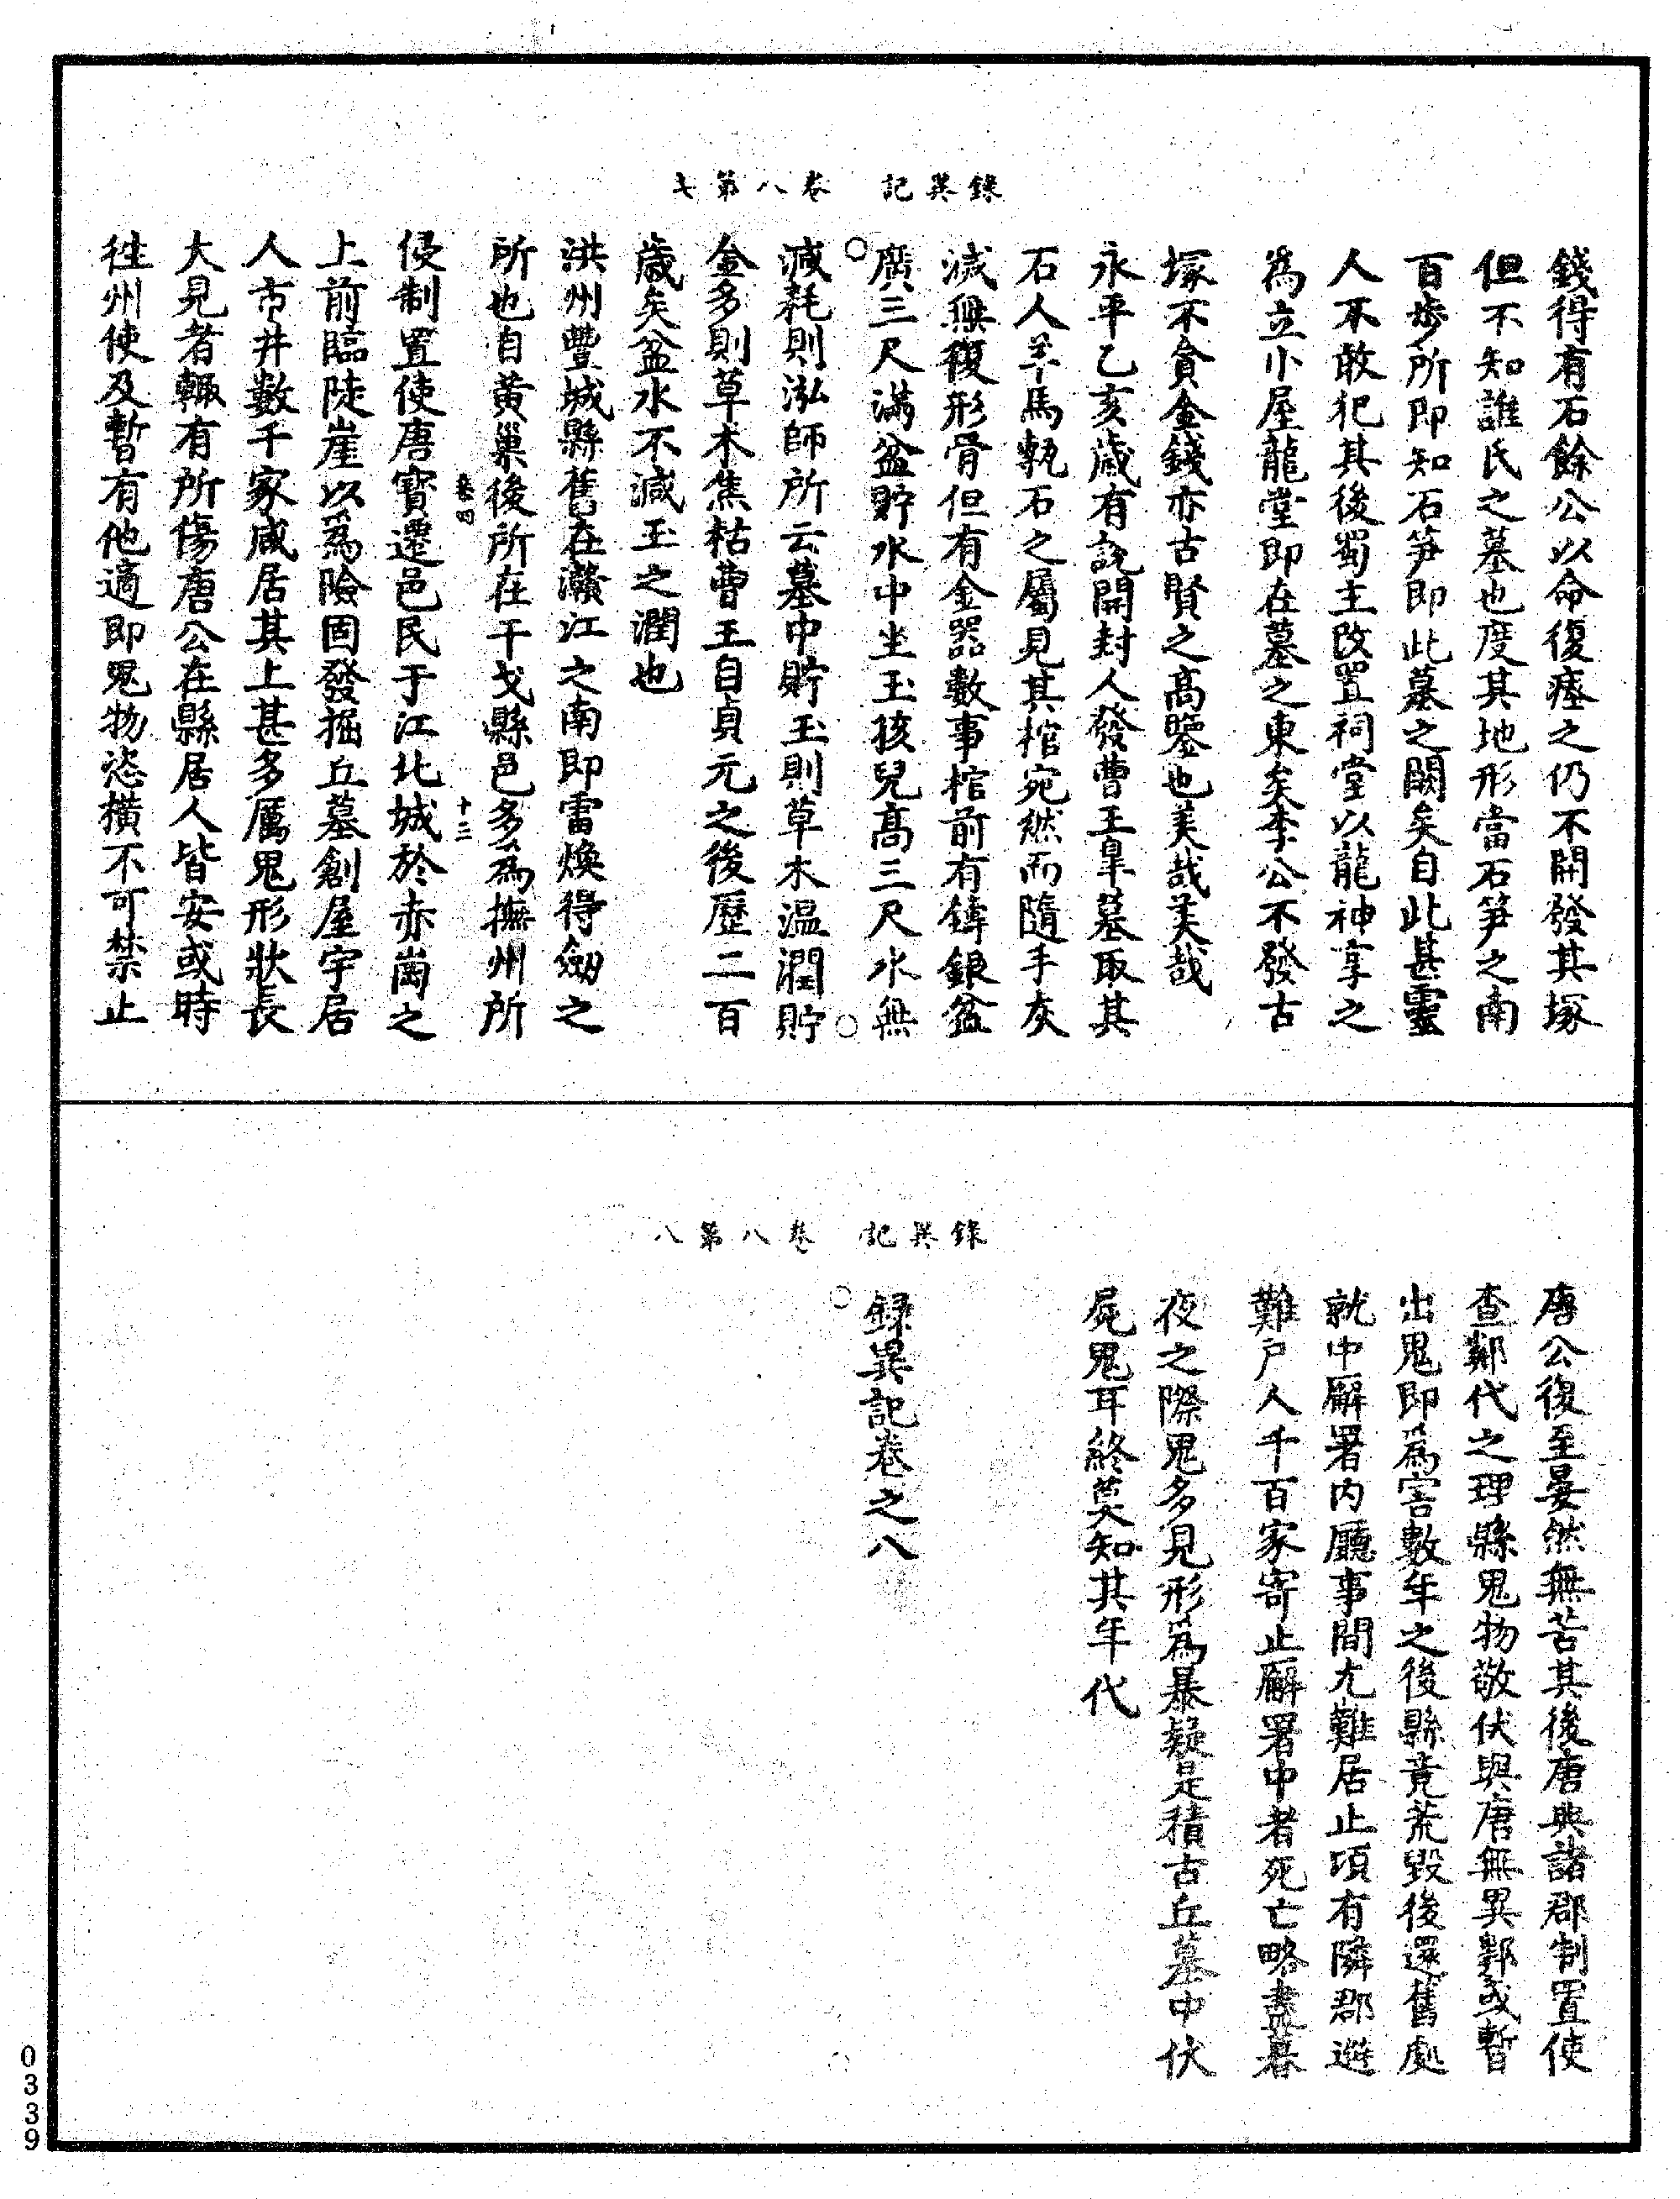 錄異記　卷八第七
錢得有石餘公以命復瘞之仍不開發其塚
但不知誰氏之墓也度其地形當石笋之南
百步所即知石笋即此墓之闕矣自此甚靈
人不敢犯其後蜀主改置祠堂以龍神享之
為立小屋龍堂即在墓之東矣李公不發古
塚不貪金錢亦古賢之高鑒也美哉美哉
永平乙亥歲有說開封人發曹王皐墓取其
石人羊馬塼石之屬見其棺宛然而隨手灰
滅無復形骨但有金器數事棺前有鑄銀盆
廣三尺滿盆貯水中坐玉孩兒高三尺水無
減耗則泓師所云墓中貯玉則草木溫潤貯
金多則草木焦枯曹王自貞元之後歷二百
歲矣盆水不減玉之潤也
洪州豐城縣舊在灨江之南即雷煥得劒之
所也自黃巢後所在干戈縣邑多為撫州所
卷四　十三
侵制置使唐寶遷邑民于江北城於赤崗之
上前臨陡崖以為險固發掘丘墓創屋宇居
人市井數千家咸居其上甚多厲鬼形狀長
大見者輙有所傷唐公在縣居人皆安或時
徃州使及暫有他適即鬼物恣橫不可禁止
錄異記　卷八第八
唐公復至晏然無苦其後唐典諸郡制置使
查鄴代之理縣鬼物敬伏與唐無異鄴或暫
出鬼即為害數年之後縣竟荒毀後還舊處
就中廨署內廳事間尤難居止頃有隣郡避
難戶人千百家寄止廨署中者死亡略盡暮
夜之際鬼多見形為暴疑是積古丘墓中伏
屍鬼耳終莫知其年代
録異記卷之八
0339